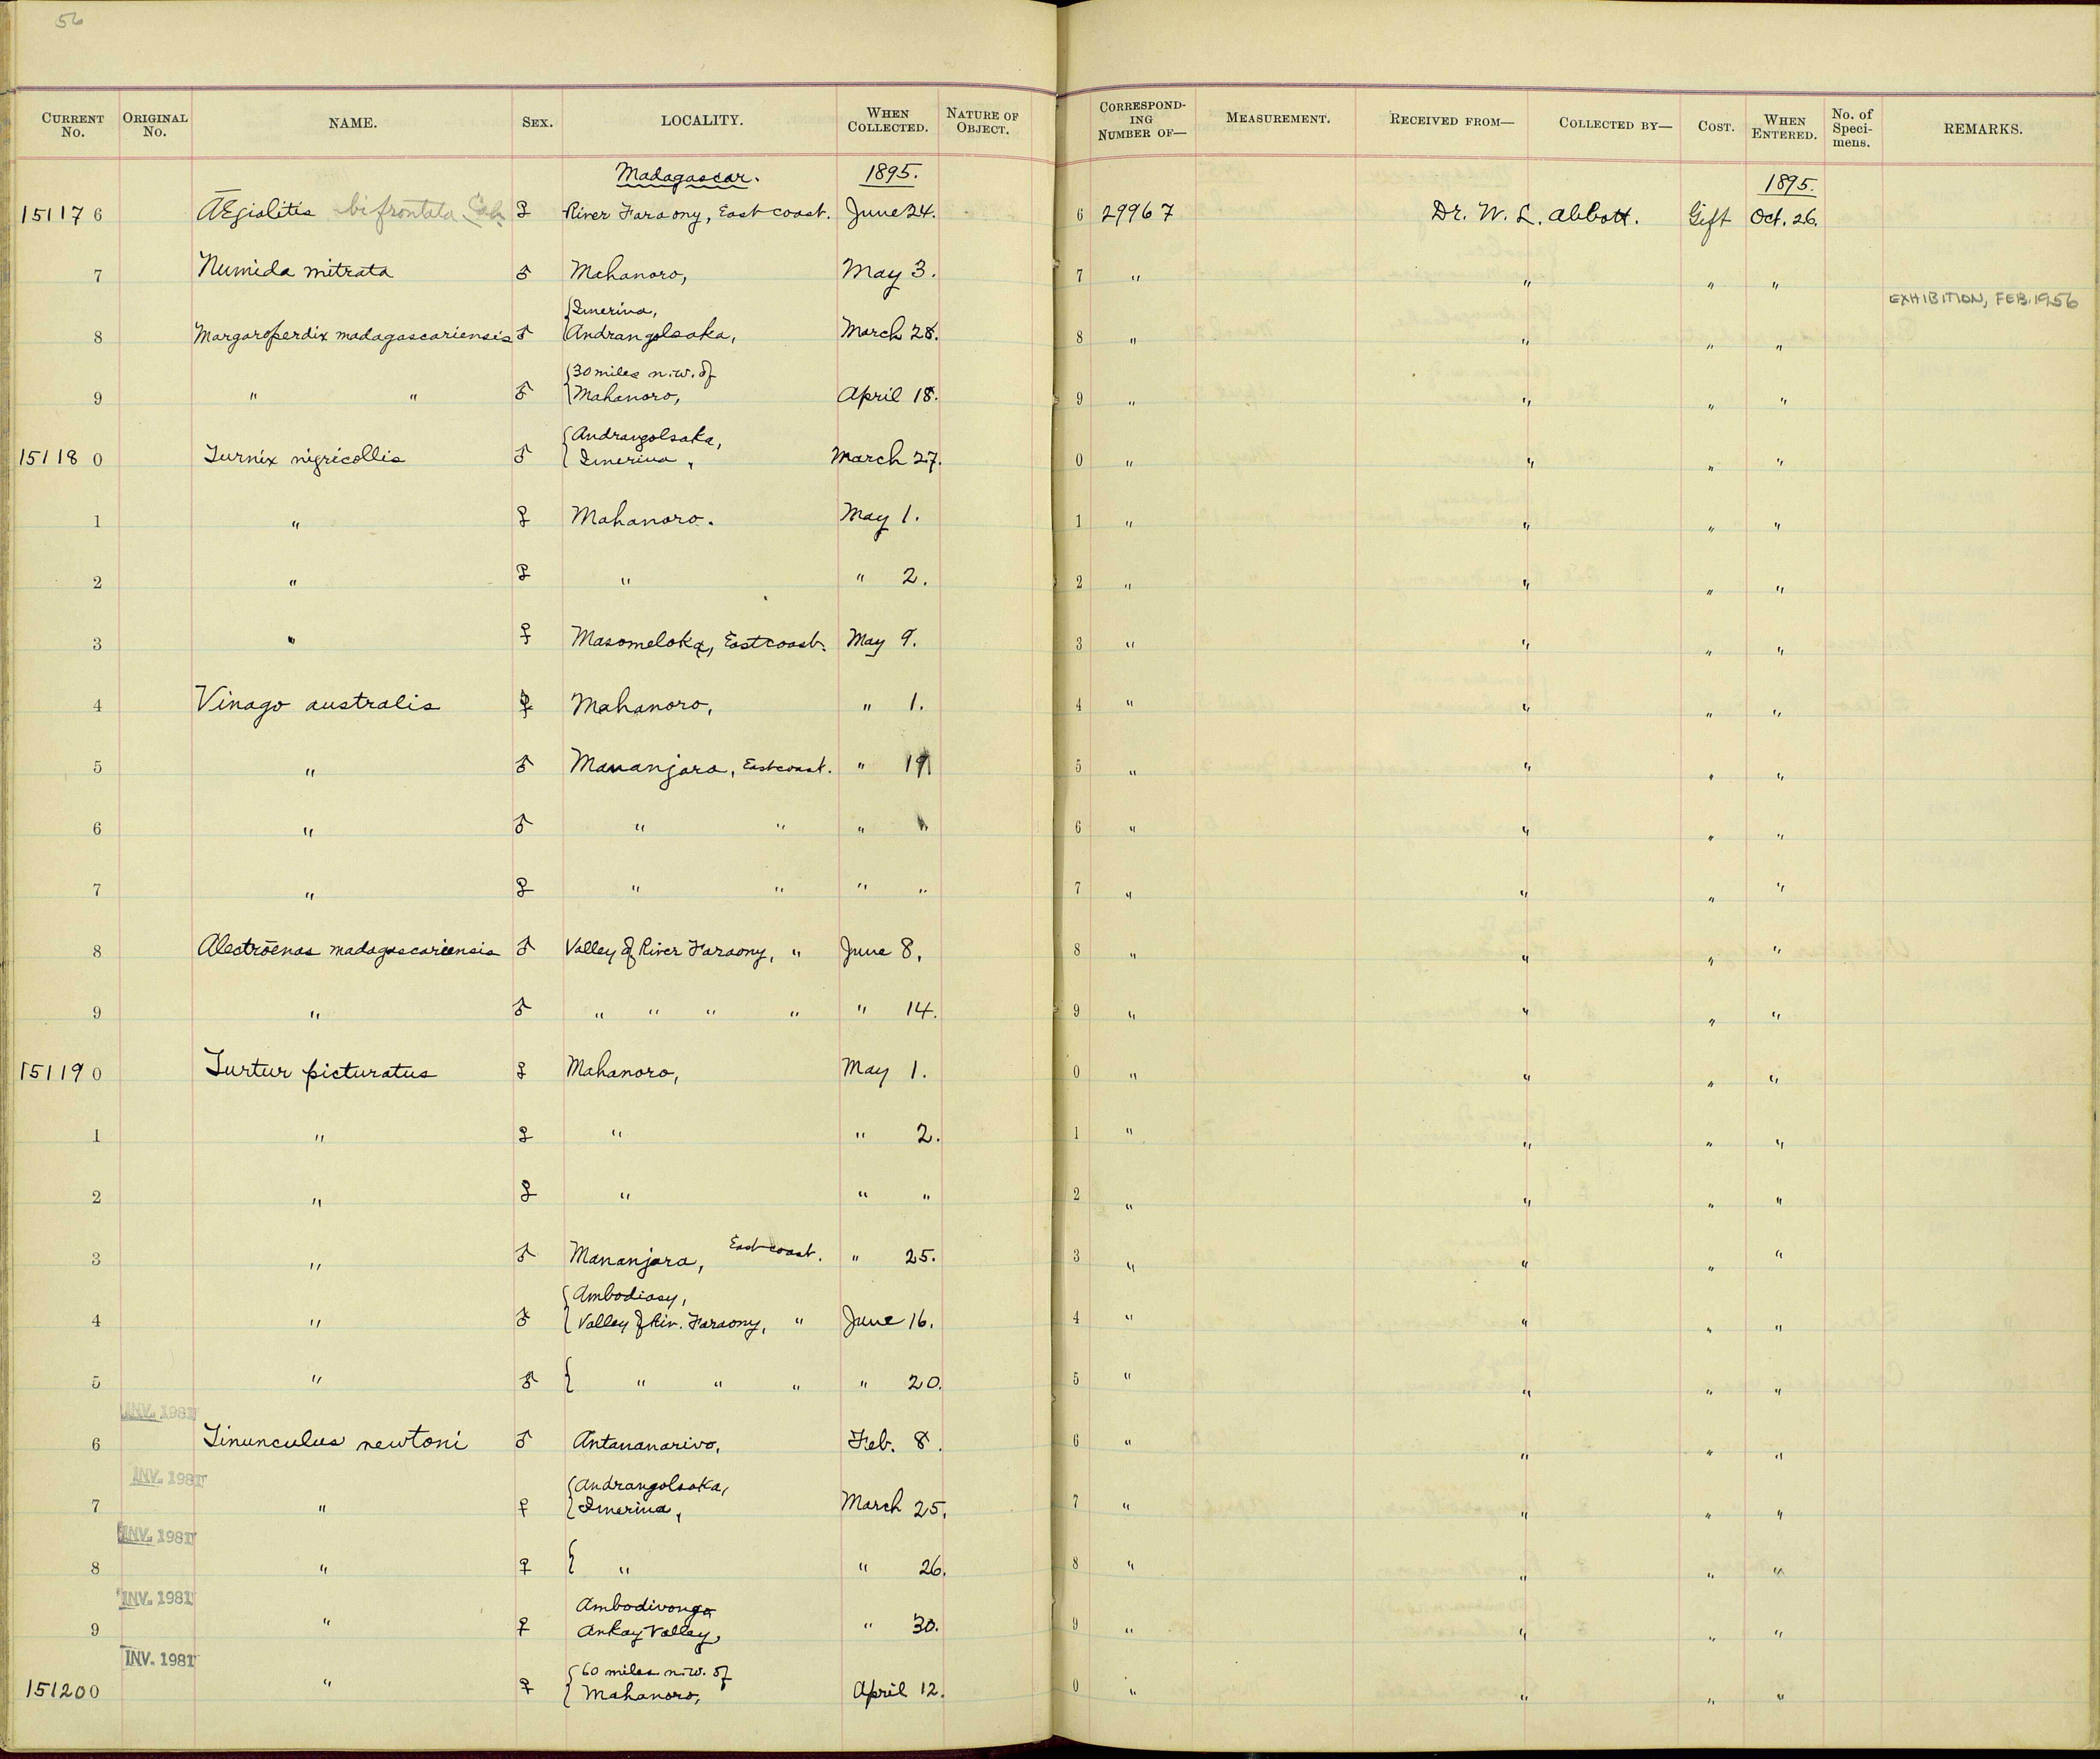 56
CURRENT No. ORIGINAL No. NAME. SEX. LOCALITY. WHEN COLLECTED. NATURE OF OBJECT. CORRESPONDING NUMBER OF— MEASUREMENT. RECEIVED FROM— COLLECTED BY— COST. WHEN ENTERED. No. of Specimens. REMARKS.
Madagascar. 1895. 1895.
15117 6 Ægialitis bifrontata Cab. ♀ River Faraony, East coast. June 24. 6 29967 Dr. W. L. Abbott. Gift Oct. 26.
7 Numida mitrata ♂ Mahanoro, May 3. 7 " " " "
EXHIBITION, FEB. 1956
{Imerina,
8 Margaroperdix madagascariensis ♂ Andrangolsaka, March 28. 8 " " " "
{30 miles n.w. of
9 " " ♂ Mahanoro, April 18. 9 " " " "
{Andrangolsaka,
15118 0 Turnix nigricollis ♂ Imerina, March 27. 0 " " " "
1 " ♀ Mahanoro. May 1. 1 " " " "
2 " ♀ " " 2. 2 " " " "
3 " ♀ Masomeloka, East coast. May 9. 3 " " " "
4 Vinago australis ♀ Mahanoro, " 1. 4 " " " "
5 " ♂ Mananjara, East coast. " 19 5 " " " "
6 " ♂ " " " " 6 " " " "
7 " ♀ " " " " 7 " " " "
8 Alectrœnas madagascariensis ♂ Valley of River Faraony, " June 8. 8 " " " "
9 " ♂ " " " " " 14. 9 " " " "
15119 0 Turtur picturatus ♀ Mahanoro, May 1. 0 " " " "
1 " ♀ " " 2. 1 " " " "
2 " ♀ " " " 2 " " " "
3 " ♂ Mananjara, East coast. " 25. 3 " " " "
{Ambodiasy,
4 " ♂ Valley of Riv. Faraony, " June 16. 4 " " " "
5 " ♂ { " " " " 20. 5 " " " "
INV. 1981
6 Tinunculus newtoni ♂ Antananarivo, Feb. 8. 6 " " " "
INV. 1981
{Andrangolsaka,
7 " ♀ Imerina, March 25. 7 " " " "
INV. 1981
8 " ♀ { " " 26. 8 " " " "
INV. 1981
Ambodivonga
9 " ♀ Ankay Valley, " 30. 9 " " " "
INV. 1981
{60 miles n.w. of
151200 " ♀ Mahanoro, April 12. 0 " " " "